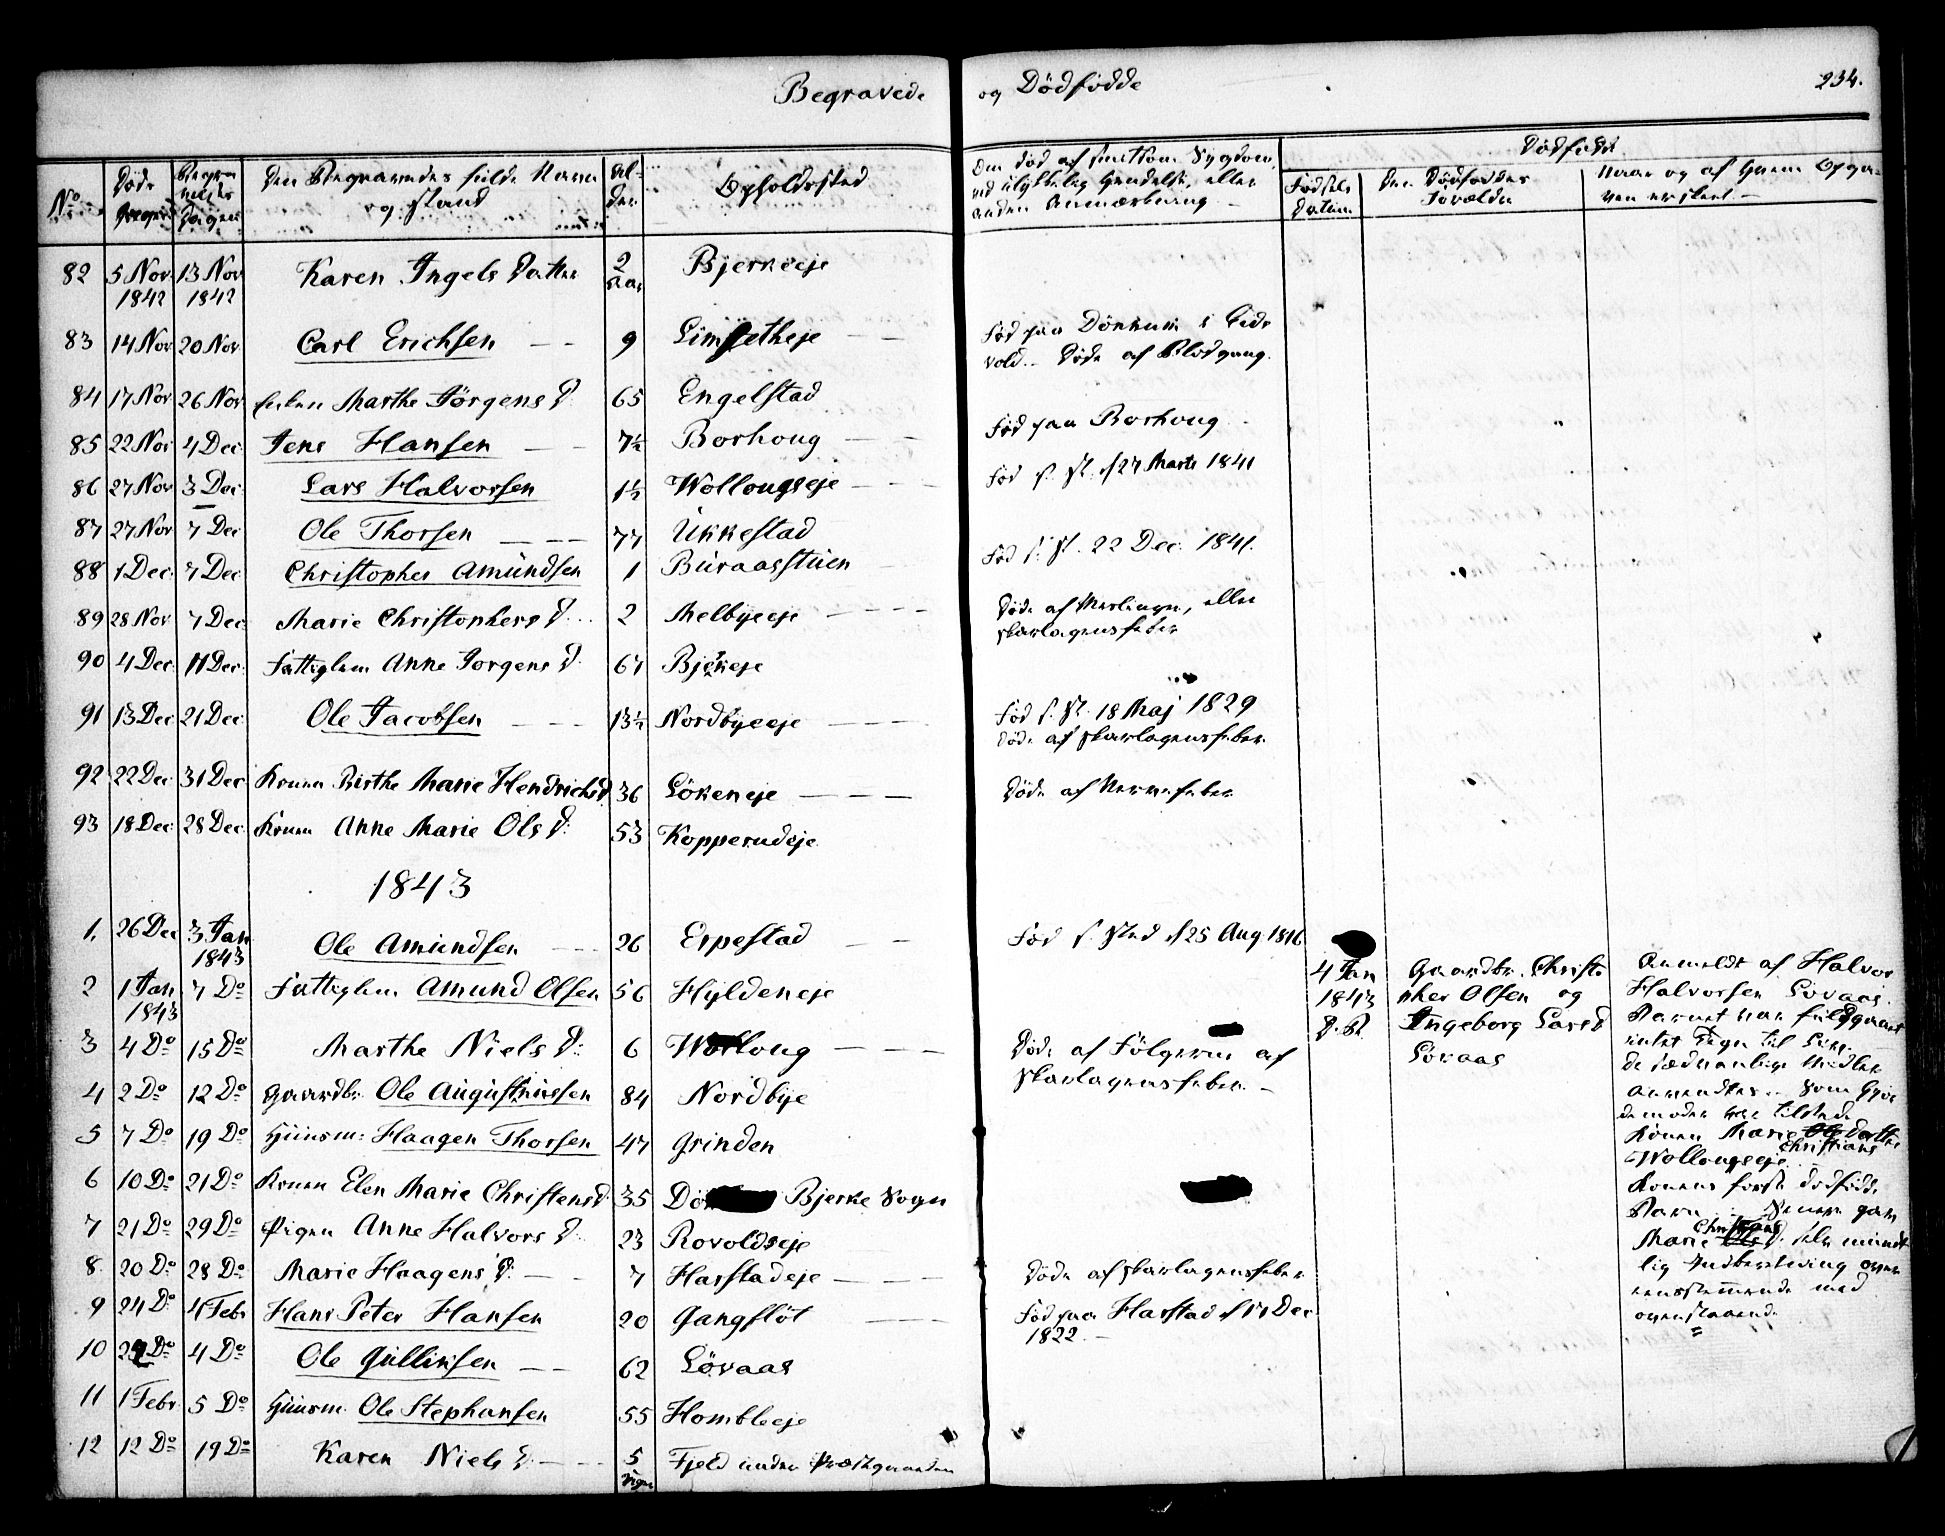 Begravede og Dødfødde 234.
No Døds Dagen Begra velses Dagen Den Begravedes fulde Navn og Stand Al- der Opholdssted Om død af smitsom Sygdom, ved ulykkelig Hendelse, eller anden Anmærkning Dødfødde
Fødsels Datum Den Dødføddes Forældre Naar og af hvem Opga- ven er skeet
82 5 Nov 1842 13 Nov 1842 Karen Ingels Datter 2 Aar Bjerkeeje
83 14 Nov 20 Nov Carl Erichsen 9 Limsetheje Fød paa Dönnum i Eids
vold. Døde af Blodgang.
84 17 Nov 26 Nov Enken Marthe Jörgens D. 65 Engelstad
85 22 Nov 4 Dec Jens Hansen 7½ Borhoug Fød paa Borhoug
86 27 Nov 3 Dec Lars Halvorsen 1½ Wollougseje Fød s. St. d 27 Marts 1841
87 27 Nov 7 Dec Ole Thorsen 77 Ukkestad
88 1 Dec 7 Dec Christopher Amundsen 1 Buraasstuen Fød s. St. 22 Dec. 1841.
89 28 Nov 7 Dec Marie Christophers D. 2 Melbyeeje Døde af Meslinger, eller
Skarlagensfeber
90 4 Dec 11 Dec Fattiglem Anne Jorgens D. 67 Bjerkeje
91 13 Dec 21 Dec Ole Jacobsen 13½ Nordbyeeje Fød s. St. 18 Maj 1829
Døde af Skarlagensfeber
92 22 Dec 31 Dec Konen Birthe Marie Hendrichsd 36 Lökeneje Døde af Nervefeber
93 18 Dec 28 Dec Konen Anne Marie Ols D: 53 Kopperudeje
1843
1. 26 Dec 3 Jan 1843 Ole Amundsen 26 Erpestad Fød s. Sted d 25 Aug 1816
2 1 Jan 1843 7 Do Fattiglem Amund Olsen 56 Hyldeneje
3 4 Do 15 Do Marthe Niels D: 6 Wolloug Døde af Følgerne af
Skarlagensfeber
4 2 Do 12 Do Gaardbr. Ole Augustinussen 84 Nordbye
5 7 Do 19 Do Huusm: Haagen Thorsen 47 Grinden
6 10 Do 21 Do Konen Elen Marie Christensd 35 Bjerke Sogn
7 21 Do 29 Do Pigen Anne Halvors D. 23 Rovoldseje
8 20 Do 28 Do Marie Haagens D. 7 Harstadeje Døde af Skarlagensfeber
9 24 Do 4 Febr Hans Peter Hansen 20 Gangflöt Fød paa Harstad d 17 Dec
1822.
10 4 Do Ole Gullixsen 62 Lövaas
11 1 Febr 5 Do Huusm. Ole Stephansen 55 Hombleeje
12 12 Do 19 Do Karen Niels D. 5 Uger Fjeld under Præstegaarden
4 Jan
1843
Gaardbr. Christo
pher Olsen og
Ingeborg Larsd
Lövaas
Anmeldt af Halvor
Halvorsen Lövaas.
Barnet var fuldbaaret
intet Tegn til Liv.
De sædvanlige Midler
anvendtes. Som Gjor
demoder var tilstede
Konen Marie Ols Datter Christians
Wollougseje
Konens første dødfødte
Barn. Senere gav
Marie Ols D. Christians selv mundt
lig Indberetning over
eensstemmende med
ovenstaaende